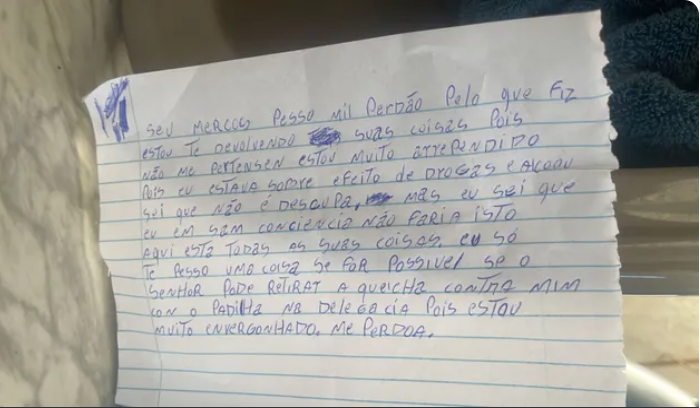 seu MERCOS PESSO Mil PERDÃO Pelo que Fiz
estou Te Devolvendo suas coisas Pois
NÃO Me PERTENSEN estou Muito ARREPENDIDO
Pois eu estava sobre efeito de DROGAS e Alcoou
sei que NÃO é Desculpa, mas eu sei que
eu em sam conciencia NÃO FARIA isto
Aqui esta Todas as suas coisas. eu só
Te Pesso uma coisa se FOR Possivel se o
senhor Pode RETIRAR A queicha contra Mim
con o Padilha NA Delegacia Pois estou
Muito envergonhado, Me Perdoa.